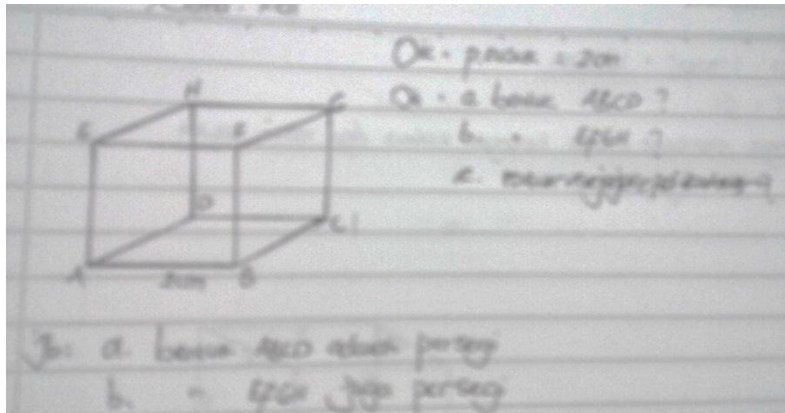 Dik. p. rusuk = 2cm
Dit. a. bentuk ABCD ?
b. " EFGH ?
c.
H
G
E
F
D
C
A
2cm
B
Jb: a. bentuk ABCD adalah persegi
b. " EFGH juga persegi